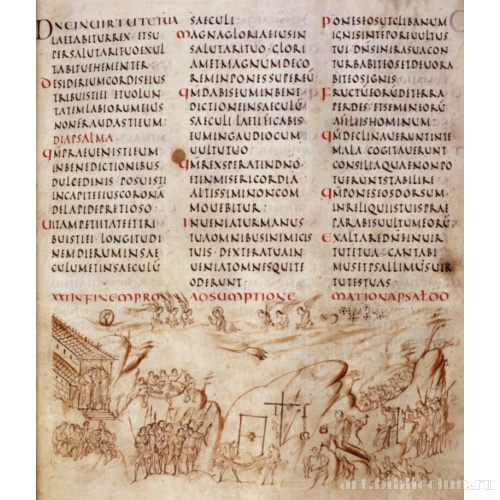 DNEINUIRTUTETUA
LAETABITURREX·ETSU
PERSALUTARITUOEXUL
TABITUEHEMENTER·
DESIDERIUMCORDISEIUS
TRIBUISTIEIETUOLUN
TATEMLABIORUMEIUS
NONFRAUDASTIEUM:
DIAPSALMA
QMPRAEUENISTIEUM
INBENEDICTIONIBUS
DULCEDINISPOSUISTI
INCAPITEEIUSCORONA
DELAPIDEPRETIOSO·
UITAMPETIITATEETTRI
BUISTIEILONGITUDI
NEMDIERUMINSAE
CULUMETINSAECULŪ
SAECULI
MAGNAGLORIAEIUSIN
SALUTARITUOGLORI
AMETMAGNUMDECO
REMINPONESSUPEREŪ
QMDABISEUMINBENE
DICTIONEINSAECULŪ
SAECULILAETIFICABIS
EUMINGAUDIOCUM
UULTUTUO
QMREXSPERATINDNO
ETINMISERICORDIA
ALTISSIMINONCOM
MOUEBITUR·
INUENIATURMANUS
TUAOMNIBUSINIMICIS
TUISDEXTERATUAIN
UENIATOMNESQUITE
ODERUNT
PONESEOSUTCLIBANUM
IGNISINTEMPOREUULTUS
TUIDNSINIRASUACON
TURBABITEOSETDEUORA
BITEOSIGNIS
FRUCTŪEORŪDETERRA
PERDESETSEMENEORŪ
AFILIISHOMINUM
QMDECLINAUERUNTINTE
MALACOGITAUERUNT
CONSILIAQUAENONPO
TUERUNTSTABILIRE
QMPONESEOSDORSUM
INRELIQUIISTUISPRAE
PARABISUULTUMEORŪ
EXALTAREDNEINUIR
TUTETUACANTABI
MUSETPSALLIMUSUIR
TUTESTUAS
XXIINFINEMPRO ADSUMPTIONE MATUTINAPSALDD
artbiblioclub.ru